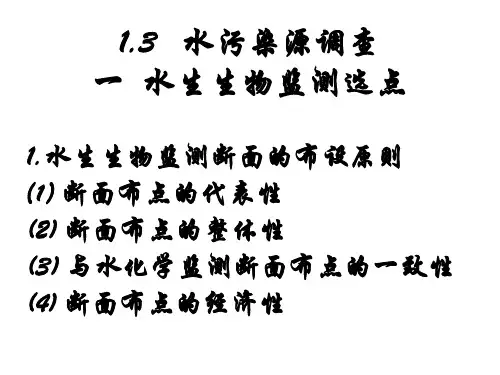 1.3 水污染源调查
一 水生生物监测选点
1.水生生物监测断面的布设原则
(1) 断面布点的代表性
(2) 断面布点的整体性
(3) 与水化学监测断面布点的一致性
(4) 断面布点的经济性